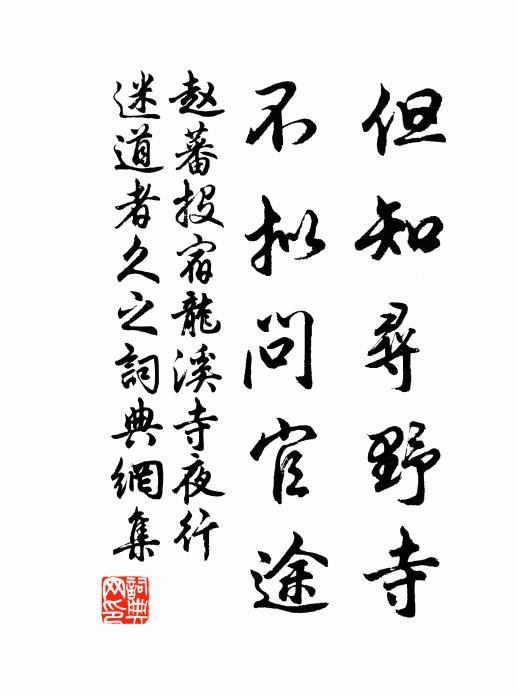 但知尋野寺
不拟問官途
赵蕃投宿龍溪寺夜行
迷道者久之詞典網集
詞典网印